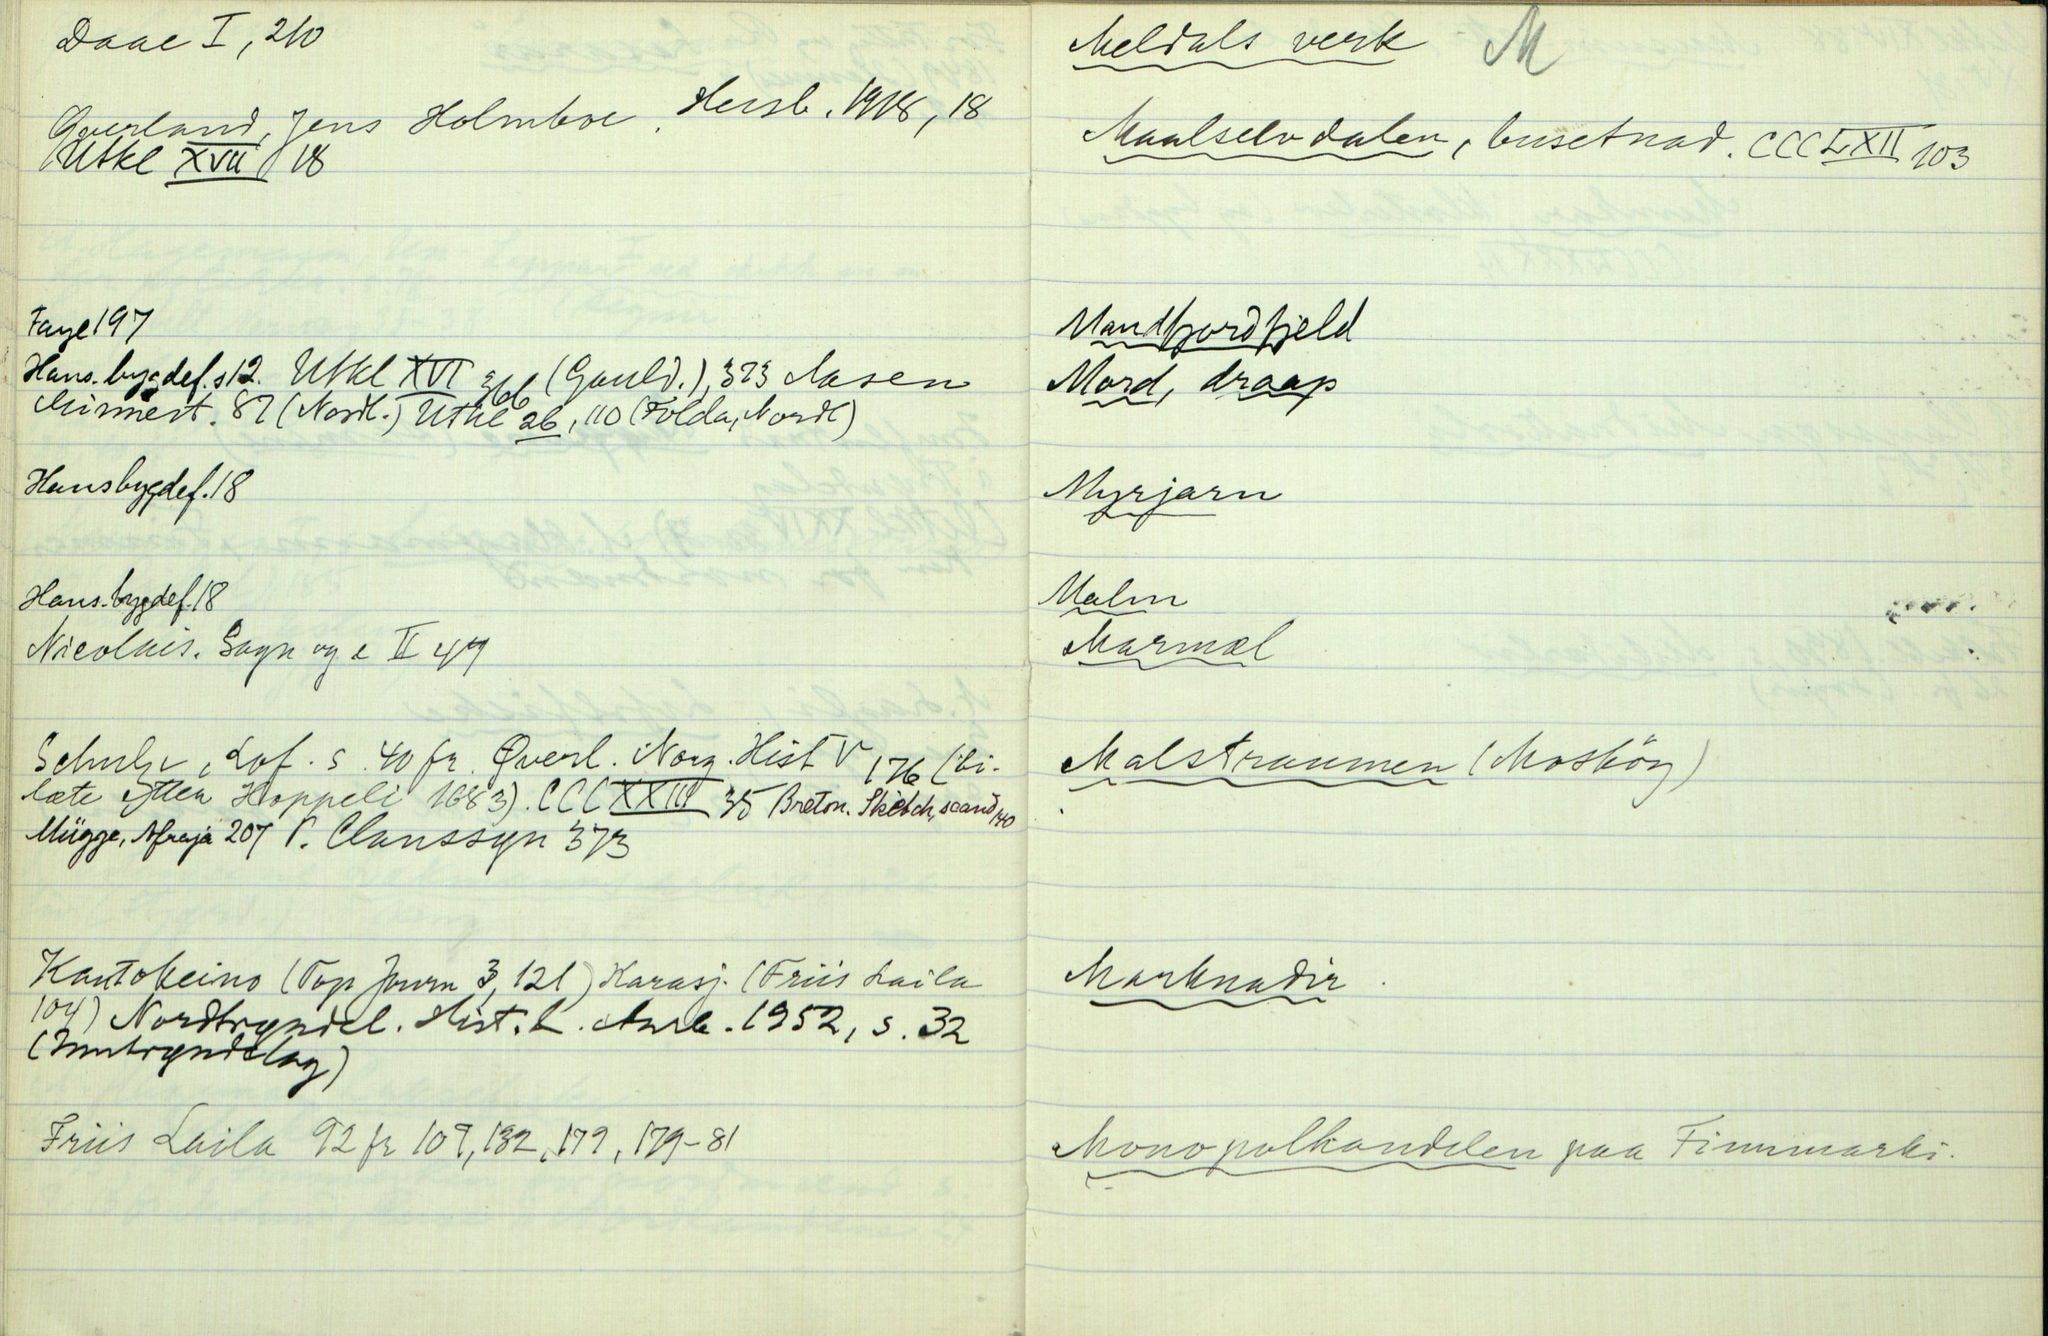 Daae I, 210
Qverland, Jens Holmboe. Hersl. 1918, 18
Utkl XVII 18
Faye 197
Hans. bygdef. s 12. Utkl XVI 366 (Gauld.), 373 Aasen
Minnest. 87 (Nordl.) Utkl 26, 110 (Folda, Nordl)
Hans bygdef. 18
Hans. bygdef. 18
Nicolais. Sagn og e II 49
Schulze, Lof. s. 40 fr. Qverl. Norg. Hist V 176 (bi-
læte etter Hoppeli 1683). CCCXXIII 35 Breton. Sketch, scand 140
Mügge, Afraja 207 N. Clanssyn 373
Kautokeino (Top Journ 3, 121) Karasj. (Friis Laila
104) Nordtryndel. Hist. L. Aarb. 1952, s. 32
(Inntryndelag)
Friis Laila 92 fr 109, 132, 179, 179-81
Meldals verk M
Maalselvdalen, busetnad. CCCLXII 103
Mandfjordfjeld
Mord, draap
Myrjarn
Malm
Marmæl
Malstraumen (Mosköy)
Marknadir
Monopolhandelen paa Finnmarki.